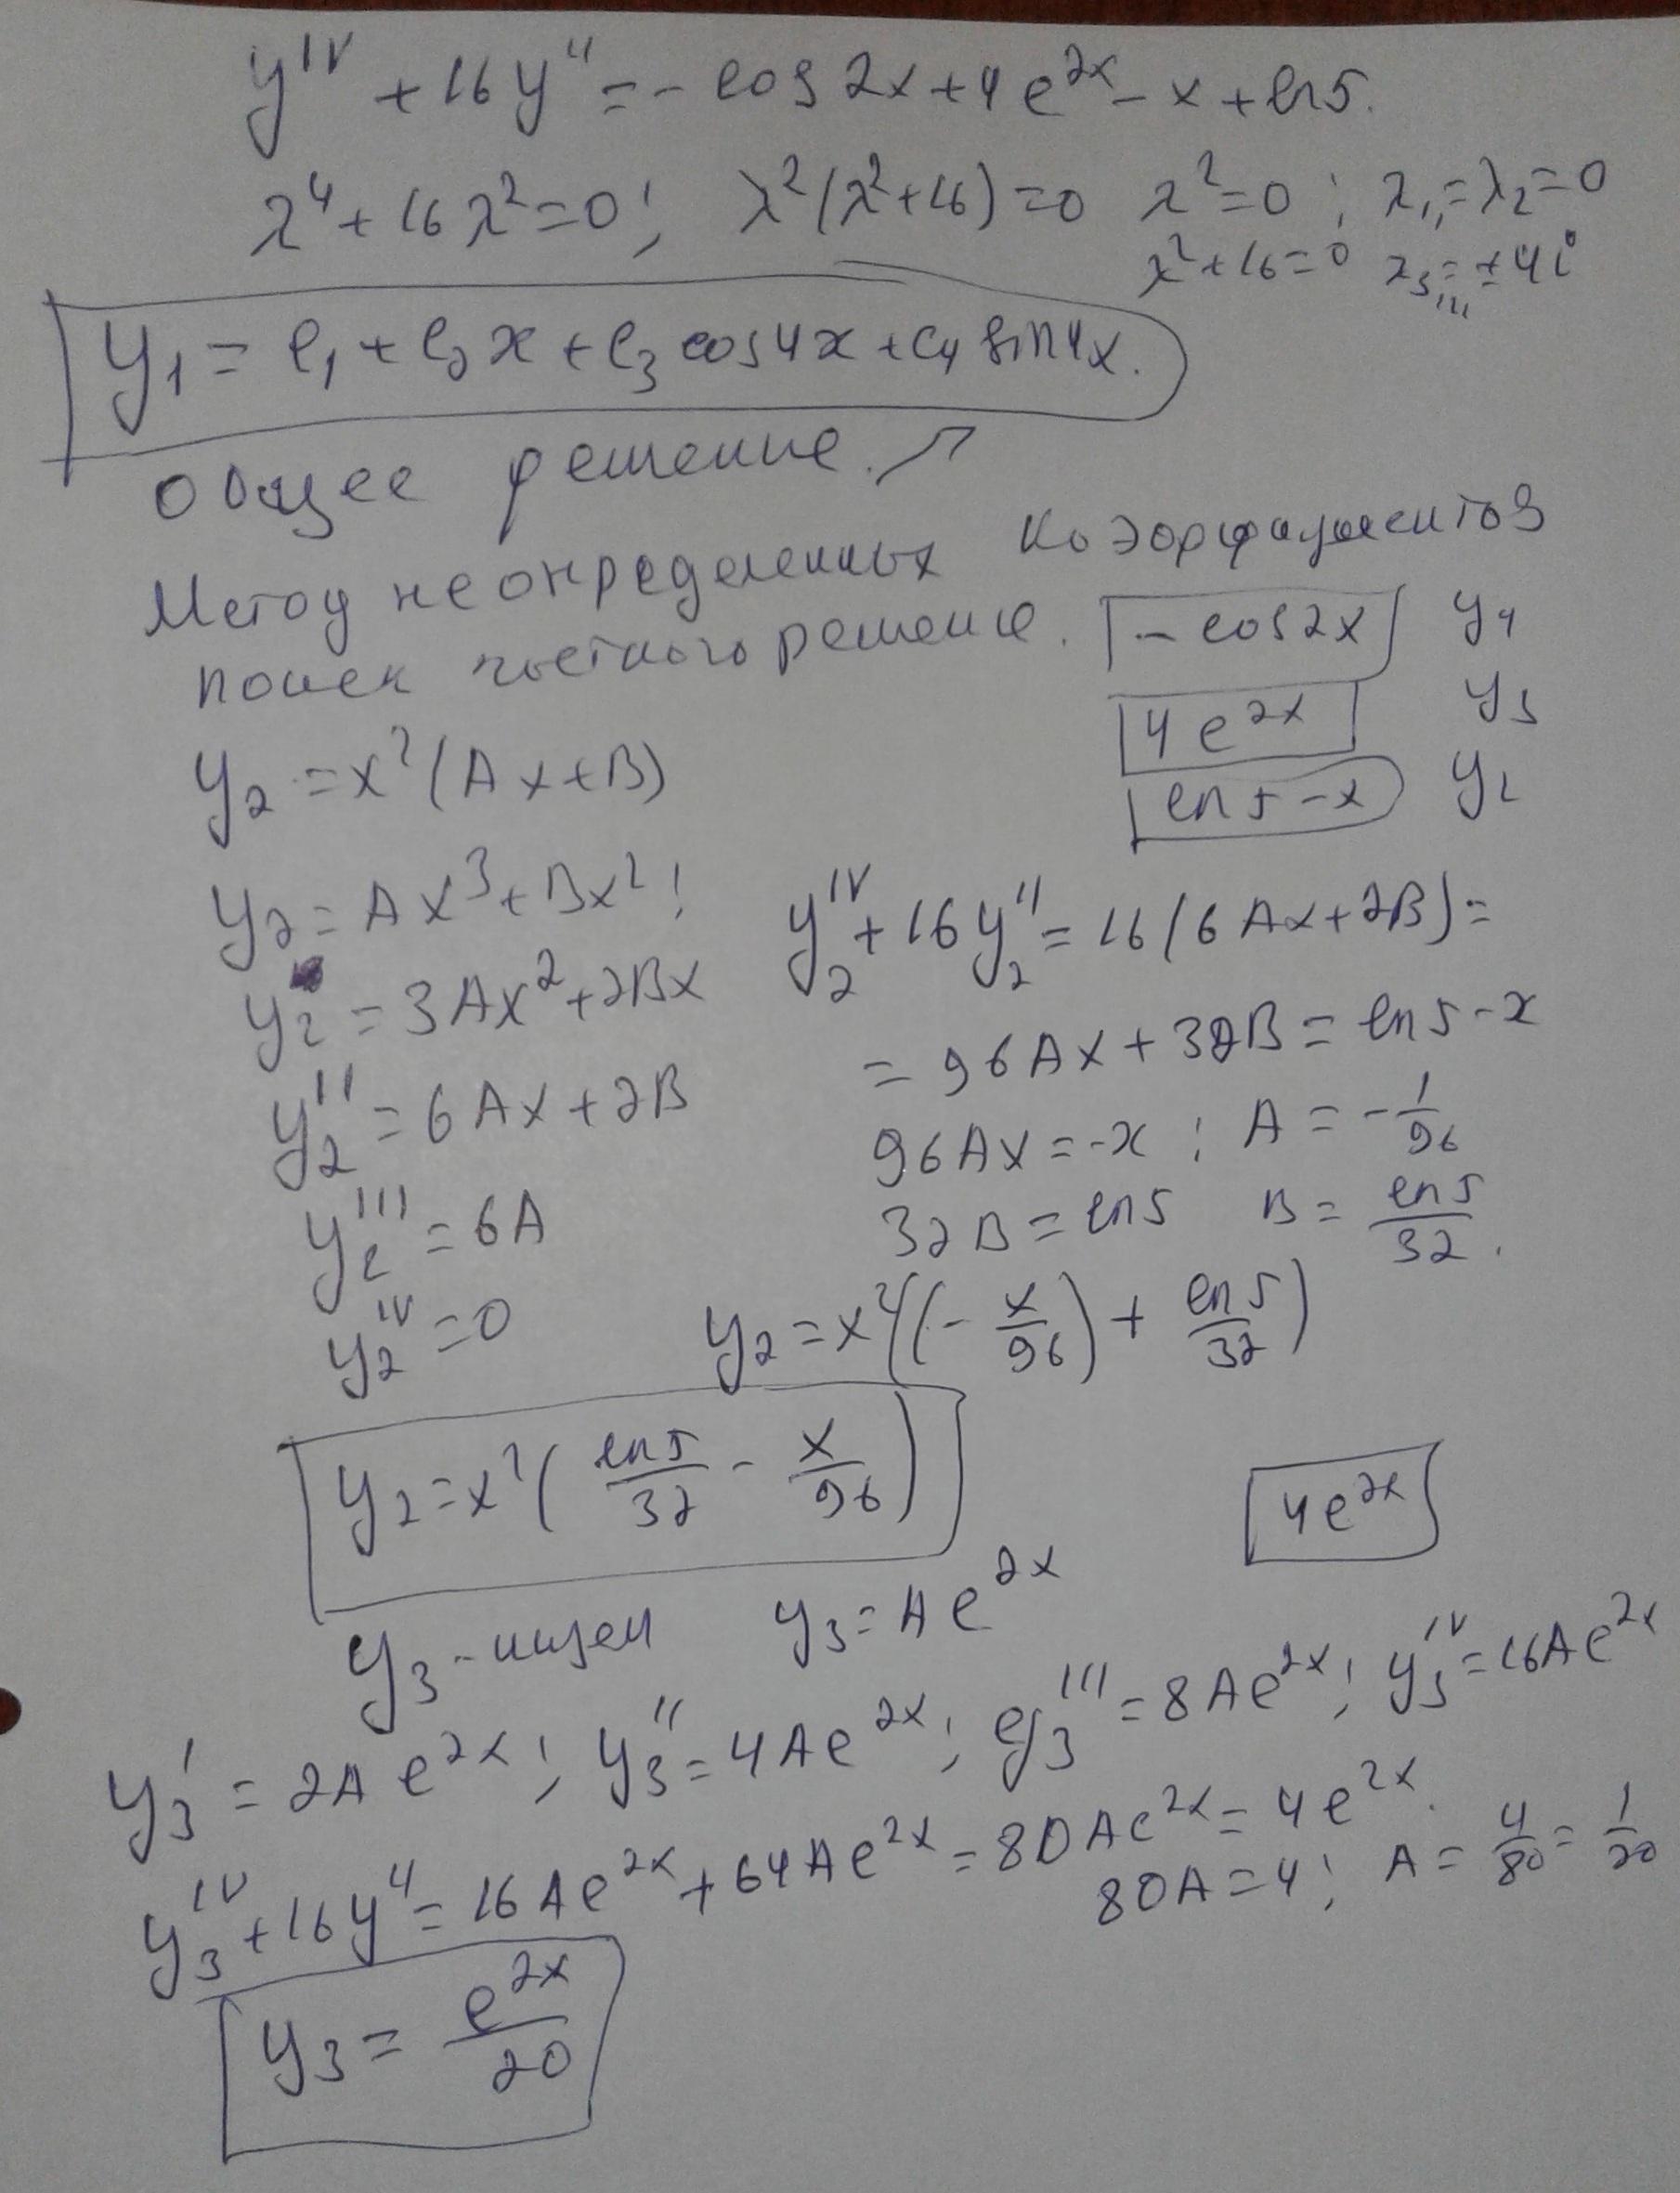 y^IV + 16y'' = - cos 2x + 4e^2x - x + ln 5.
λ^4 + 16λ^2 = 0; λ^2(λ^2+16) = 0 λ^2 = 0; λ1 = λ2 = 0
λ^2 + 16 = 0 λ3,4 = ±4i
y1 = C1 + C2 x + C3 cos 4x + C4 sin 4x.
Общее решение.↗
Метод неопределенных коэффициентов
поиск частного решение. - cos 2x y4
4e^2x y3
ln 5 - x y2
y2 = x^2(Ax + B)
y2 = Ax^3 + Bx^2; y2^IV + 16y2'' = 16(6Ax + 2B) =
y2' = 3Ax^2 + 2Bx
= 96Ax + 32B = ln 5 - x
y2'' = 6Ax + 2B
96Ax = -x; A = - 1/96
y2''' = 6A
32B = ln 5 B = ln 5/32.
y2^IV = 0
y2 = x^2((- x/96) + ln 5/32)
y2 = x^2(ln 5/32 - x/96)
4e^2x
y3 - ищем y3 = Ae^2x
y3' = 2Ae^2x; y3'' = 4Ae^2x; y3''' = 8Ae^2x; y3^IV = 16Ae^2x
y3^IV + 16y'' = 16Ae^2x + 64Ae^2x = 80Ae^2x = 4e^2x.
80A = 4; A = 4/80 = 1/20
y3 = e^2x/20